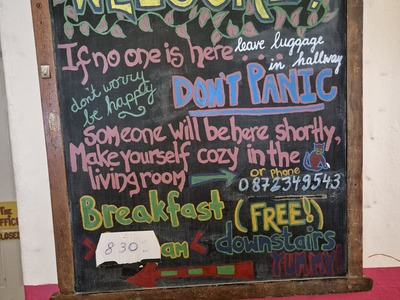 WELCOME!
If no one is here ... leave luggage
in hallway
don't worry
be happy
DON'T PANIC
Someone will be here shortly,
Make yourself cozy in the
living room
or phone
0872349543
Breakfast (FREE!)
830- am downstairs
YUMMY!
THE
OFFICE
CLOSED